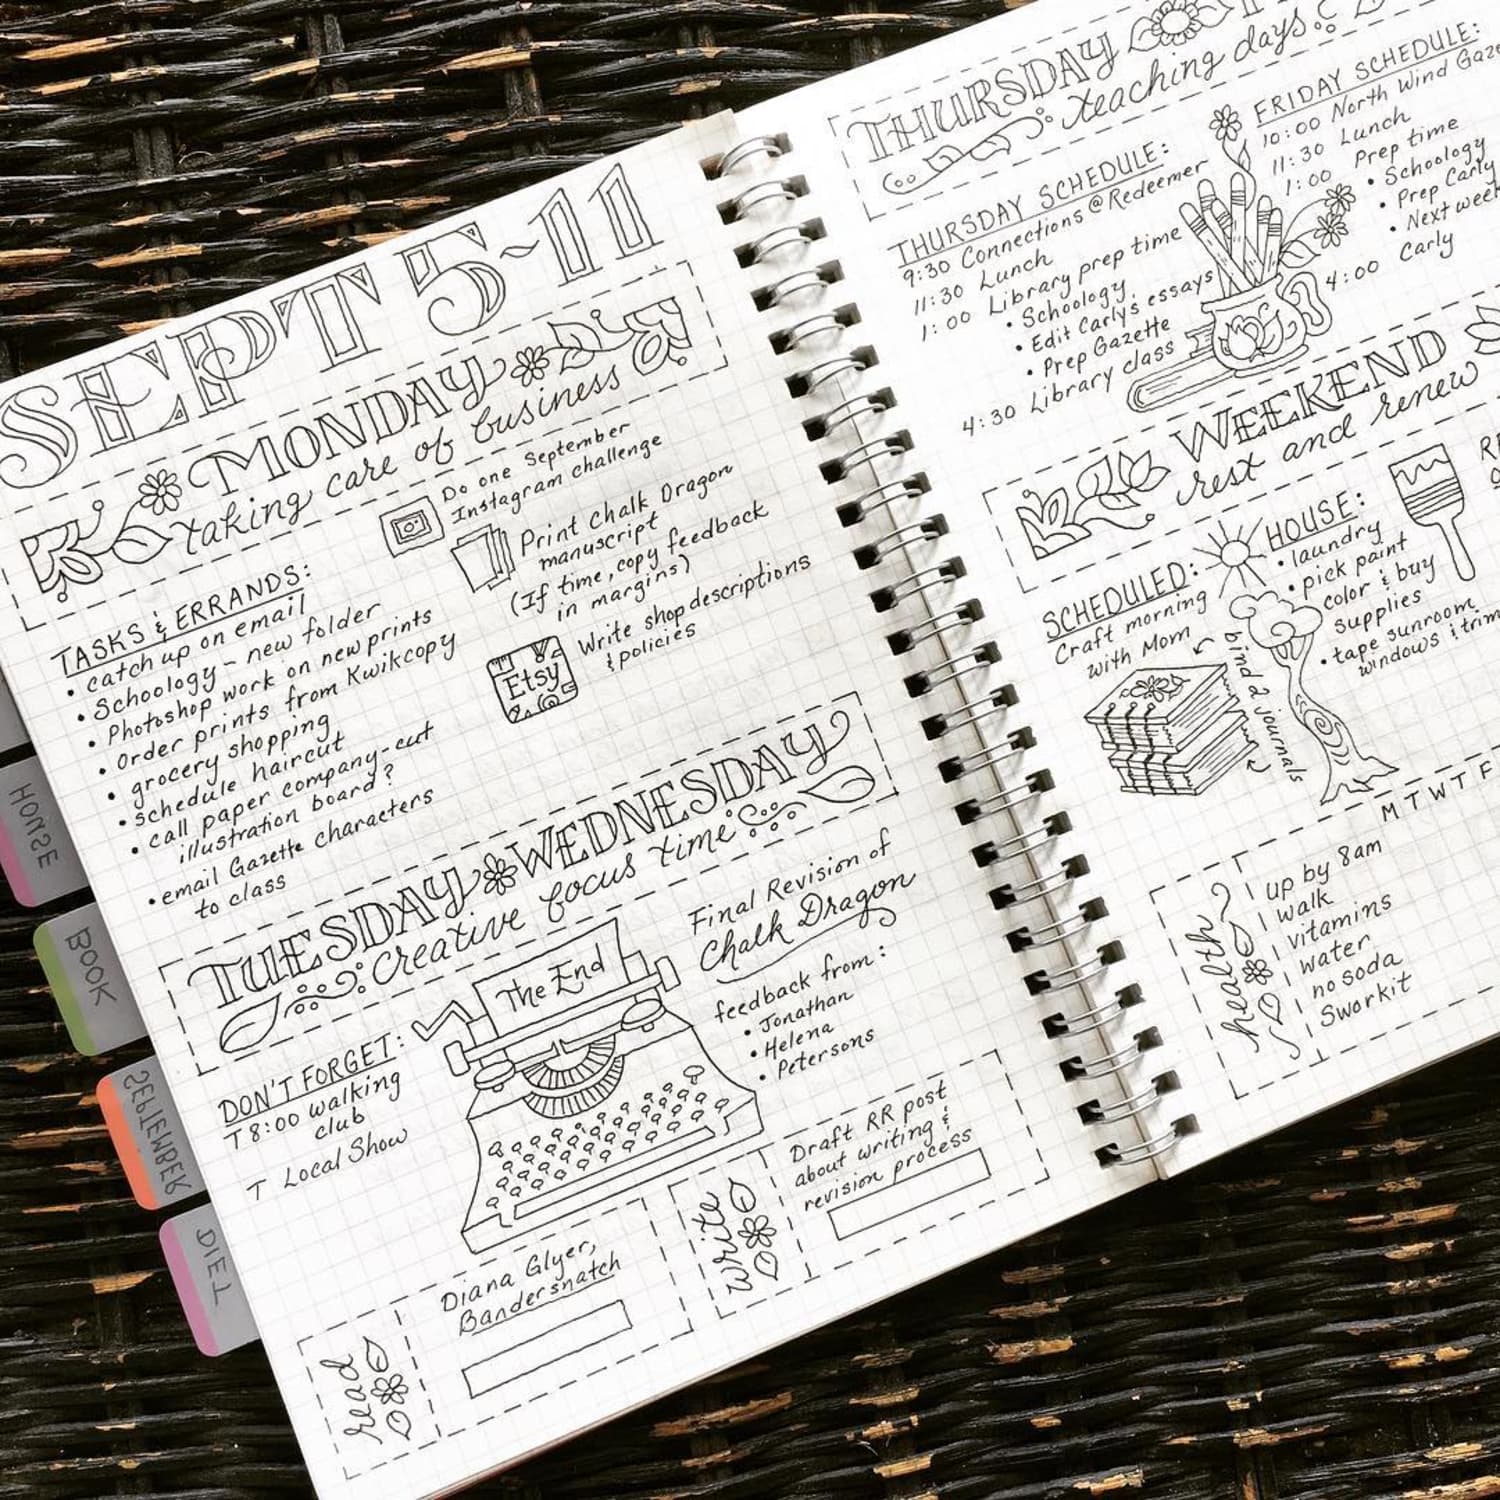 SEPT 5-11
MONDAY
taking care of business
TASKS & ERRANDS:
• catch up on email
• Schoology - new folder
• Photoshop work on new prints
• order prints from Kwikcopy
• grocery shopping
• schedule haircut
• call paper company-cut
illustration board?
• email Gazette characters
to class
Do one September
Instagram challenge
Print Chalk Dragon
manuscript
(If time, copy feedback
in margins)
Etsy
Write shop descriptions
& policies
TUESDAY WEDNESDAY
creative focus time
DON'T FORGET:
T 8:00 walking
club
T Local Show
The End
Final Revision of
Chalk Dragon
feedback from:
• Jonathan
• Helena
• Petersons
read
Diana Glyer,
Bandersnatch
write
Draft RR post
about writing &
revision process
THURSDAY
teaching days
THURSDAY SCHEDULE:
9:30 Connections @ Redeemer
11:30 Lunch
1:00 Library prep time
• Schoology
• Edit Carly's essays
• Prep Gazette
4:30 Library class
FRIDAY SCHEDULE:
10:00 North Wind
11:30 Lunch
1:00 Prep time
• Schoology
• Prep Carly
• Next week
4:00 Carly
WEEKEND
rest and renew
SCHEDULED:
Craft morning
with Mom
bind 2 journals
HOUSE:
• laundry
• pick paint
color & buy
supplies
• tape sunroom
windows & trim
M T W T F
health
up by 8am
walk
vitamins
water
no soda
Sworkit
HOUSE
BOOK
SEPTEMBER
DIET